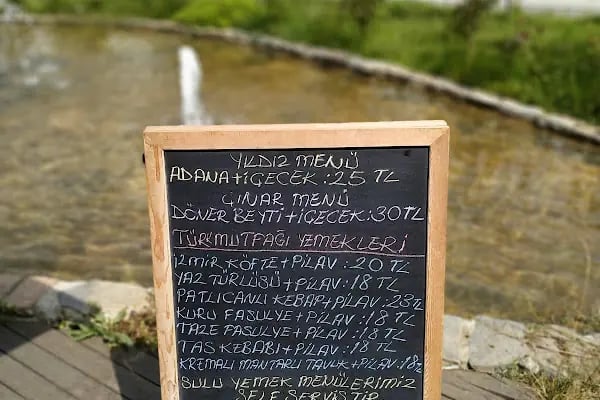 YILDIZ MENÜ
ADANA+İÇECEK:25 TL
ÇINAR MENÜ
DÖNER BEYTİ+İÇECEK:30TL
TÜRK MUTFAĞI YEMEKLERİ
İZMİR KÖFTE+PİLAV:20 TL
YAZ TÜRLÜSÜ+PİLAV:18 TL
PATLICANLI KEBAP+PİLAV:23TL
KURU FASULYE+PİLAV:18 TL
TAZE FASULYE+PİLAV:18 TL
TAS KEBABI+PİLAV:18 TL
KREMALI MANTARLI TAVUK+PİLAV:18
SULU YEMEK MENÜLERİMİZ
SELF SERVİSTİR